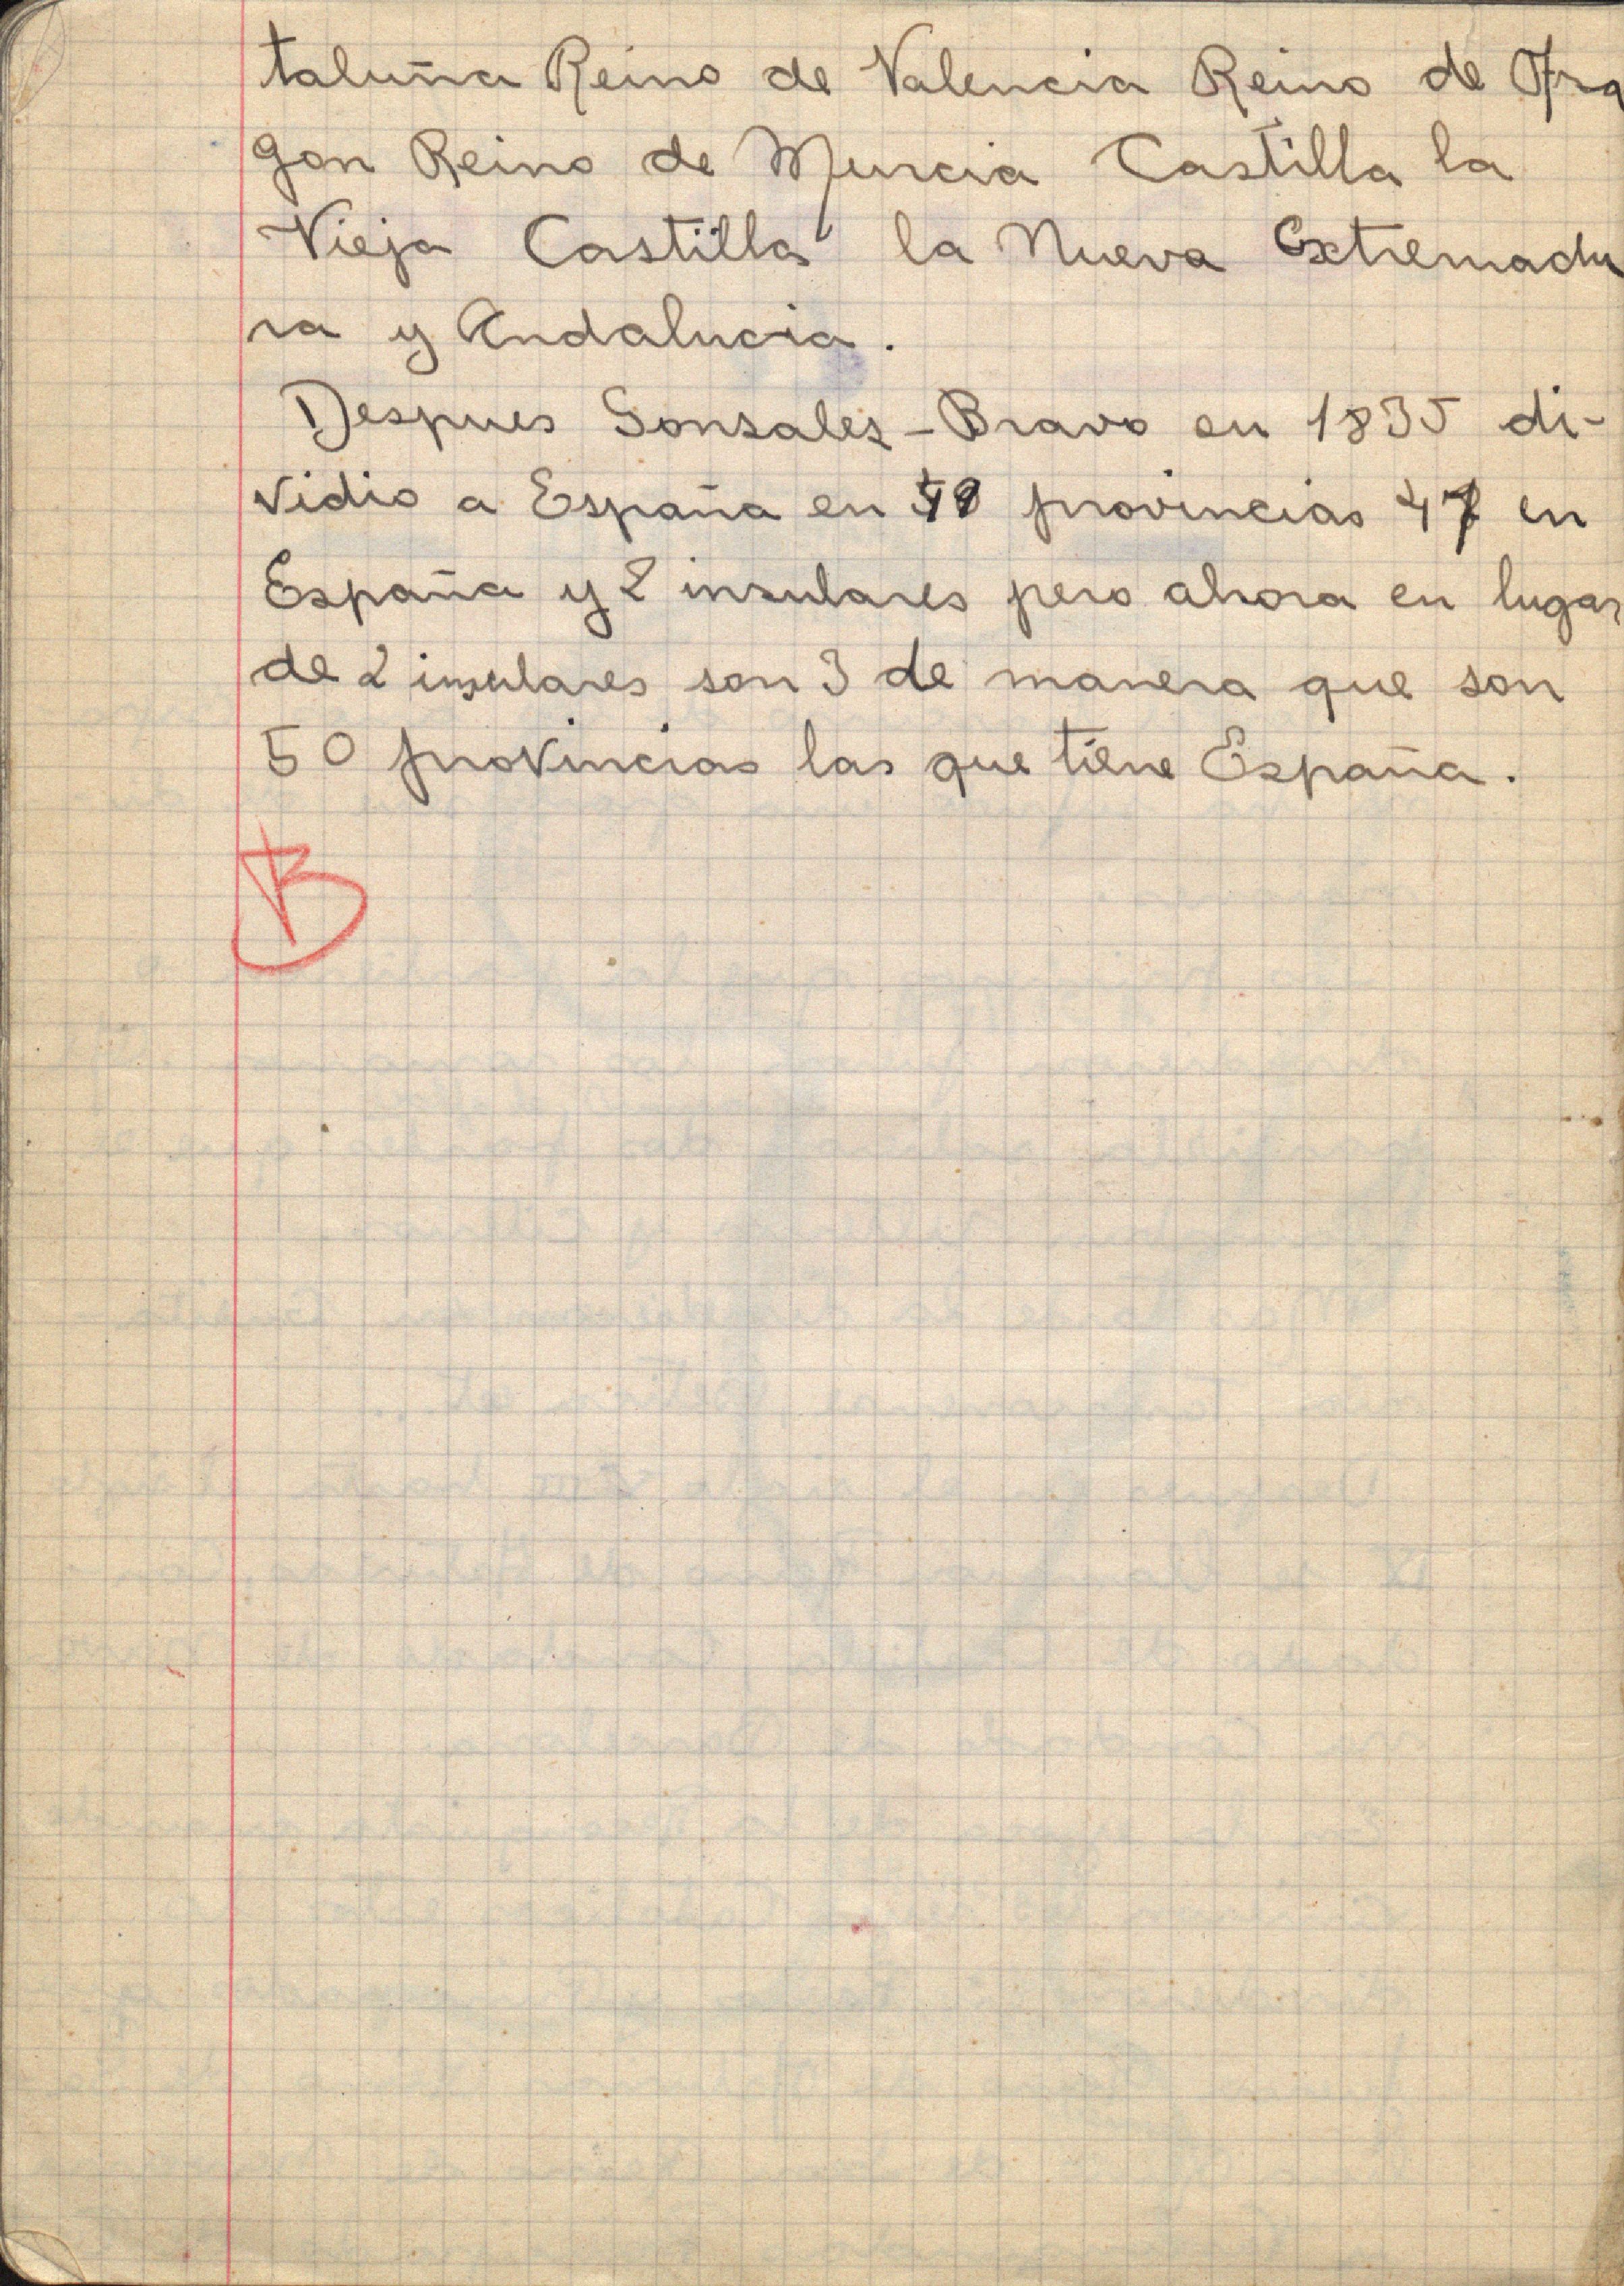 taluña Reino de Valencia Reino de Ara
gon Reino de Murcia Castilla la
Vieja Castilla la Nueva Extremadu
ra y Andalucia.
Despues Gonsales-Bravo en 1835 di-
vidio a España en 49 provincias 47 en
España y 2 insulares pero ahora en lugar
de 2 insulares son 3 de manera que son
50 provincias las que tiene España.
B